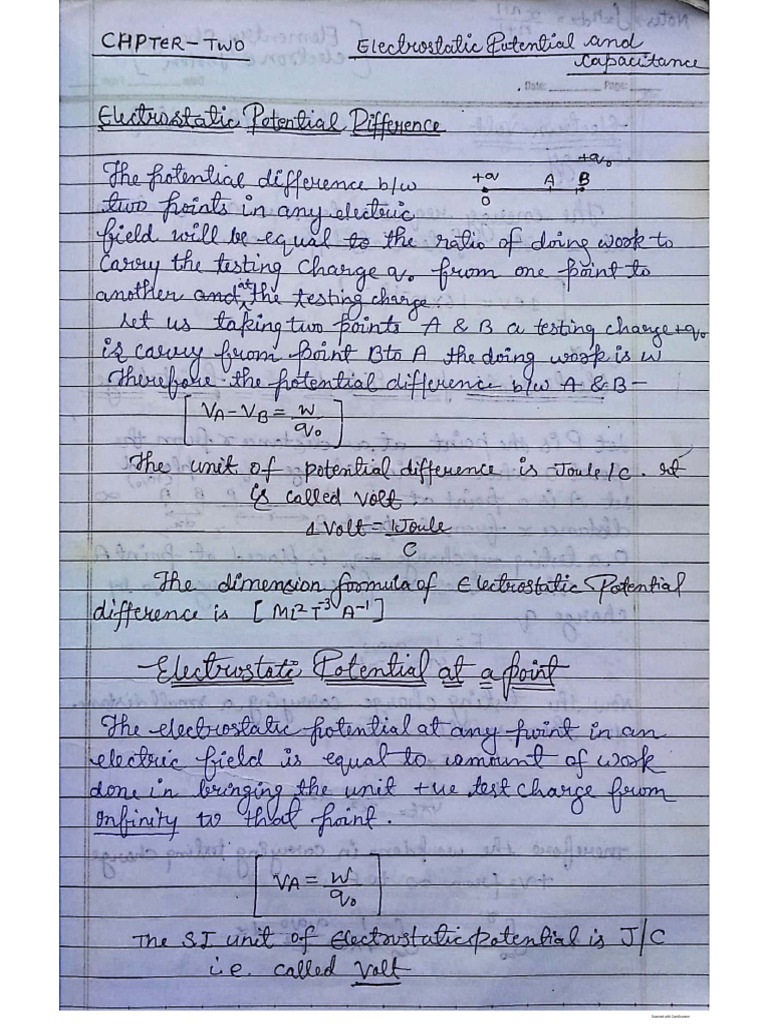 CHPTER-TWO Electrostatic Potential and
Capacitance
Date: Page:
Electrostatic Potential Difference
+q₀
The potential difference b/w +q A B
O
two points in any electric
field will be equal to the ratio of doing work to
carry the testing charge q₀ from one point to
another and at the testing charge.
Let us taking two points A & B a testing charge +q₀
is carry from point B to A the doing work is W
Therefore the potential difference b/w A & B -
[VA-VB = W/q₀]
The unit of potential difference is Joule/C. it
is called Volt.
1 Volt = 1Joule/C
The dimension formula of Electrostatic Potential
difference is [ML² T⁻³ A⁻¹]
Electrostati Potential at a point
The electrostatic potential at any point in an
electric field is equal to amount of work
done in bringing the unit +ve test charge from
infinity to that point.
[VA = W/q₀]
The SI unit of Electrostatic potential is J/C
i.e. called Volt
Scanned with CamScanner